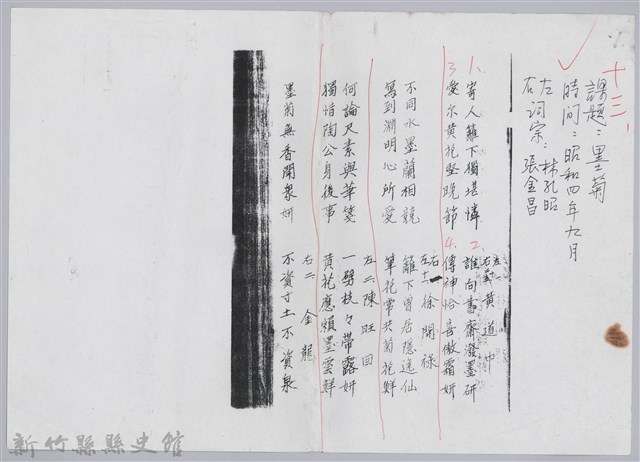 十三、
課題：墨菊
時间：昭和四年九月
左詞宗：林孔昭
右 張金昌
左一
右 黃道中
1、寄人籬下獨堪憐 2、誰向書齋潑墨研
3愛尔黄花堅晚節 4、傳神恰喜傲霜妍
右
左十一 徐開祿
不同水墨蘭相競 籬下曾居隱逸仙
寫到淵明心所愛 筆花常共菊花鮮
左二 陳旺回
何論尺素與華箋 一劈枝々帶露妍
獨惜陶公身後事 黄花應頫墨雲鮮
右二 金龍
墨菊無香開衆妍 不資寸土不資泉
新竹縣縣史館